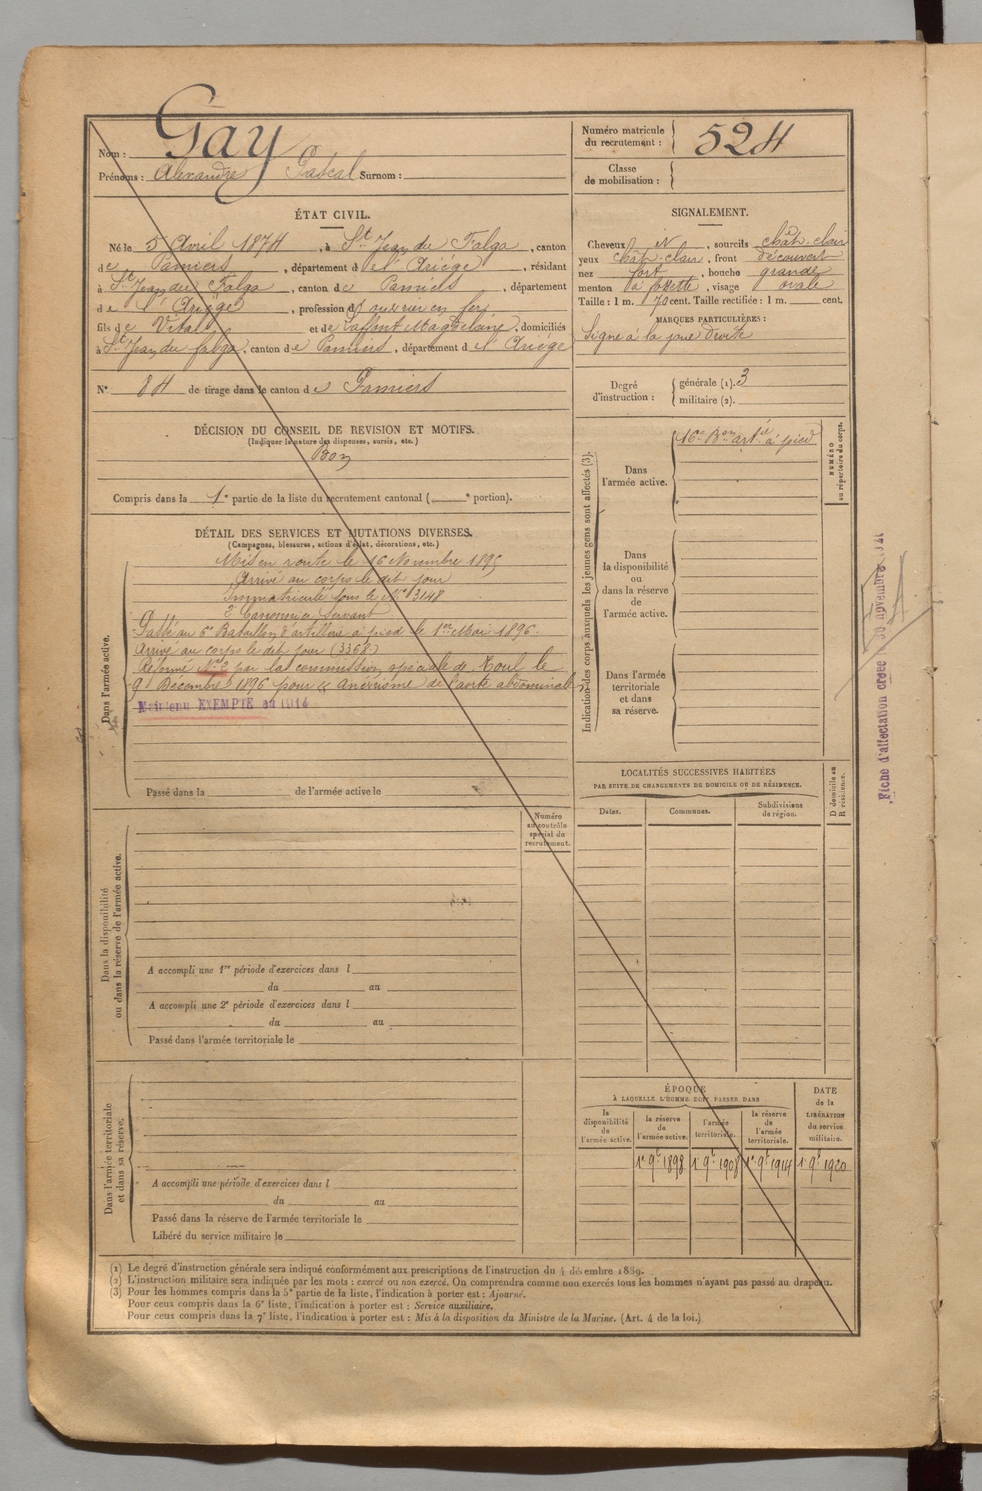 Nom : Gay
Prénoms : Alexandre Pascal Surnom :
Numéro matricule du recrutement : 524
Classe de mobilisation :
ÉTAT CIVIL.
Né le 5 Avril 1874, à St Jean du Falga, canton
de Pamiers, département de l'Ariège, résidant
à St Jean du Falga, canton de Pamiers, département
de l'Ariège, profession d'ouvrier en fer
fils de Vital et de Laffont Magdelaine, domiciliés
à St Jean du falga, canton de Pamiers, département de l'Ariège
N° 84 de tirage dans le canton de Pamiers
SIGNALEMENT.
Cheveux N, sourcils chât. clair
yeux chât. clair, front découvert
nez fort, bouche grande
menton à fossette, visage ovale
Taille : 1 m. 70 cent. Taille rectifiée : 1 m. cent.
MARQUES PARTICULIÈRES :
Signe à la joue droite
Degré d'instruction : générale (1). 3
militaire (2).
DÉCISION DU CONSEIL DE REVISION ET MOTIFS.
(Indiquer la nature des dispenses, sursis, etc.)
Bon
Compris dans la 1e partie de la liste du recrutement cantonal ( e portion).
DÉTAIL DES SERVICES ET MUTATIONS DIVERSES.
(Campagnes, blessures, actions d'éclat, décorations, etc.)
Dans l'armée active.
Mis en route le 16 Novembre 1895
Arrivé au corps le dit jour
Immatriculé sous le N° 3148
2e Canonnier Servant
Passé au 6e Bataillon d'artillerie à pied le 1er Mai 1896.
Arrivé au corps le dit jour (3368)
Réformé N° 2 par la commission spéciale de Toul le
Décembre 1896 pour anévrisme de l'aorte abdominale
Maintenu EXEMPTÉ en 1914
Passé dans la de l'armée active le
Indication des corps auxquels les jeunes gens sont affectés (3).
Dans l'armée active.
16e Bon artie à pied
NUMÉRO au répertoire du corps.
Dans la disponibilité ou dans la réserve de l'armée active.
Dans l'armée territoriale et dans sa réserve.
Fiche d'affectation créée 30 novembre
LOCALITÉS SUCCESSIVES HABITÉES
PAR SUITE DE CHANGEMENTS DE DOMICILE OU DE RÉSIDENCE.
Dates. Communes. Subdivisions de région.
D domicile ou R résidence.
Numéro au contrôle spécial du recrutement.
Dans la disponibilité ou dans la réserve de l'armée active.
A accompli une 1re période d'exercices dans l
du au
A accompli une 2e période d'exercices dans l
du au
Passé dans l'armée territoriale le
Dans l'armée territoriale et dans sa réserve.
A accompli une période d'exercices dans l
du au
Passé dans la réserve de l'armée territoriale le
Libéré du service militaire le
ÉPOQUE
À LAQUELLE L'HOMME DOIT PASSER DANS
la disponibilité de l'armée active.
la réserve de l'armée active.
l'armée territoriale.
la réserve de l'armée territoriale.
DATE de la LIBÉRATION du service militaire.
1er 9bre 1898 1er 9bre 1908 1er 9bre 1914 1er 9bre 1920
(1) Le degré d'instruction générale sera indiqué conformément aux prescriptions de l'instruction du 4 décembre 1889.
(2) L'instruction militaire sera indiquée par les mots : exercé ou non exercé. On comprendra comme non exercés tous les hommes n'ayant pas passé au drapeau.
(3) Pour les hommes compris dans la 5e partie de la liste, l'indication à porter est : Ajourné.
Pour ceux compris dans la 6e liste, l'indication à porter est : Service auxiliaire.
Pour ceux compris dans la 7e liste, l'indication à porter est : Mis à la disposition du Ministre de la Marine. (Art. 4 de la loi.)